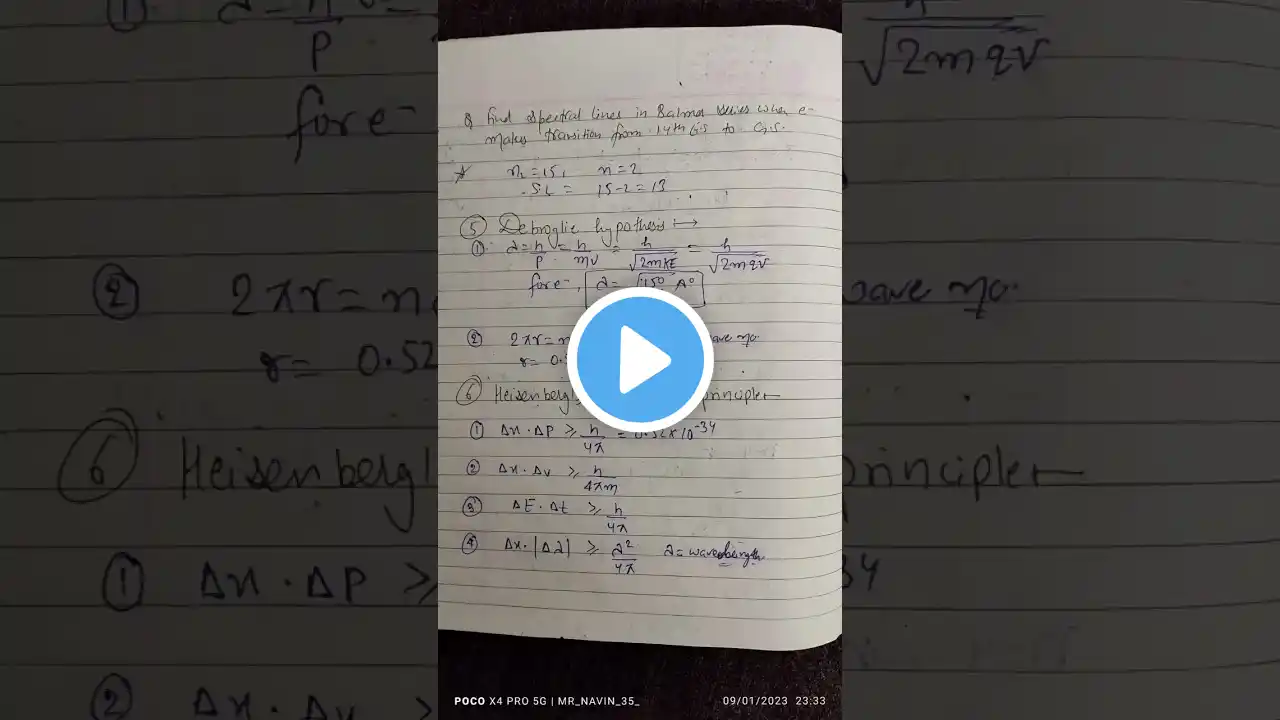 Q Find spectral lines in Balmer series when e-
makes transition from 14th E.S to G.S.
n₂ = 15, n = 2
SL = 15-2 = 13
⑤ Debroglie hypothesis ↦
① λ = h/P = h/mv = h/√2mKE = h/√2mqV
for e-, λ = √150 A°
② 2πr = n wave no.
r = 0.52
⑥ Heisenberg principle ↤
① Δx · ΔP ≥ h/4π = 0.52 × 10⁻³⁴
② Δx · Δv ≥ h/4πm
③ ΔE · Δt ≥ h/4π
④ Δx · |Δλ| ≥ λ²/4π λ = wavelength
POCO X4 PRO 5G | MR_NAVIN_35_
09/01/2023 23:33